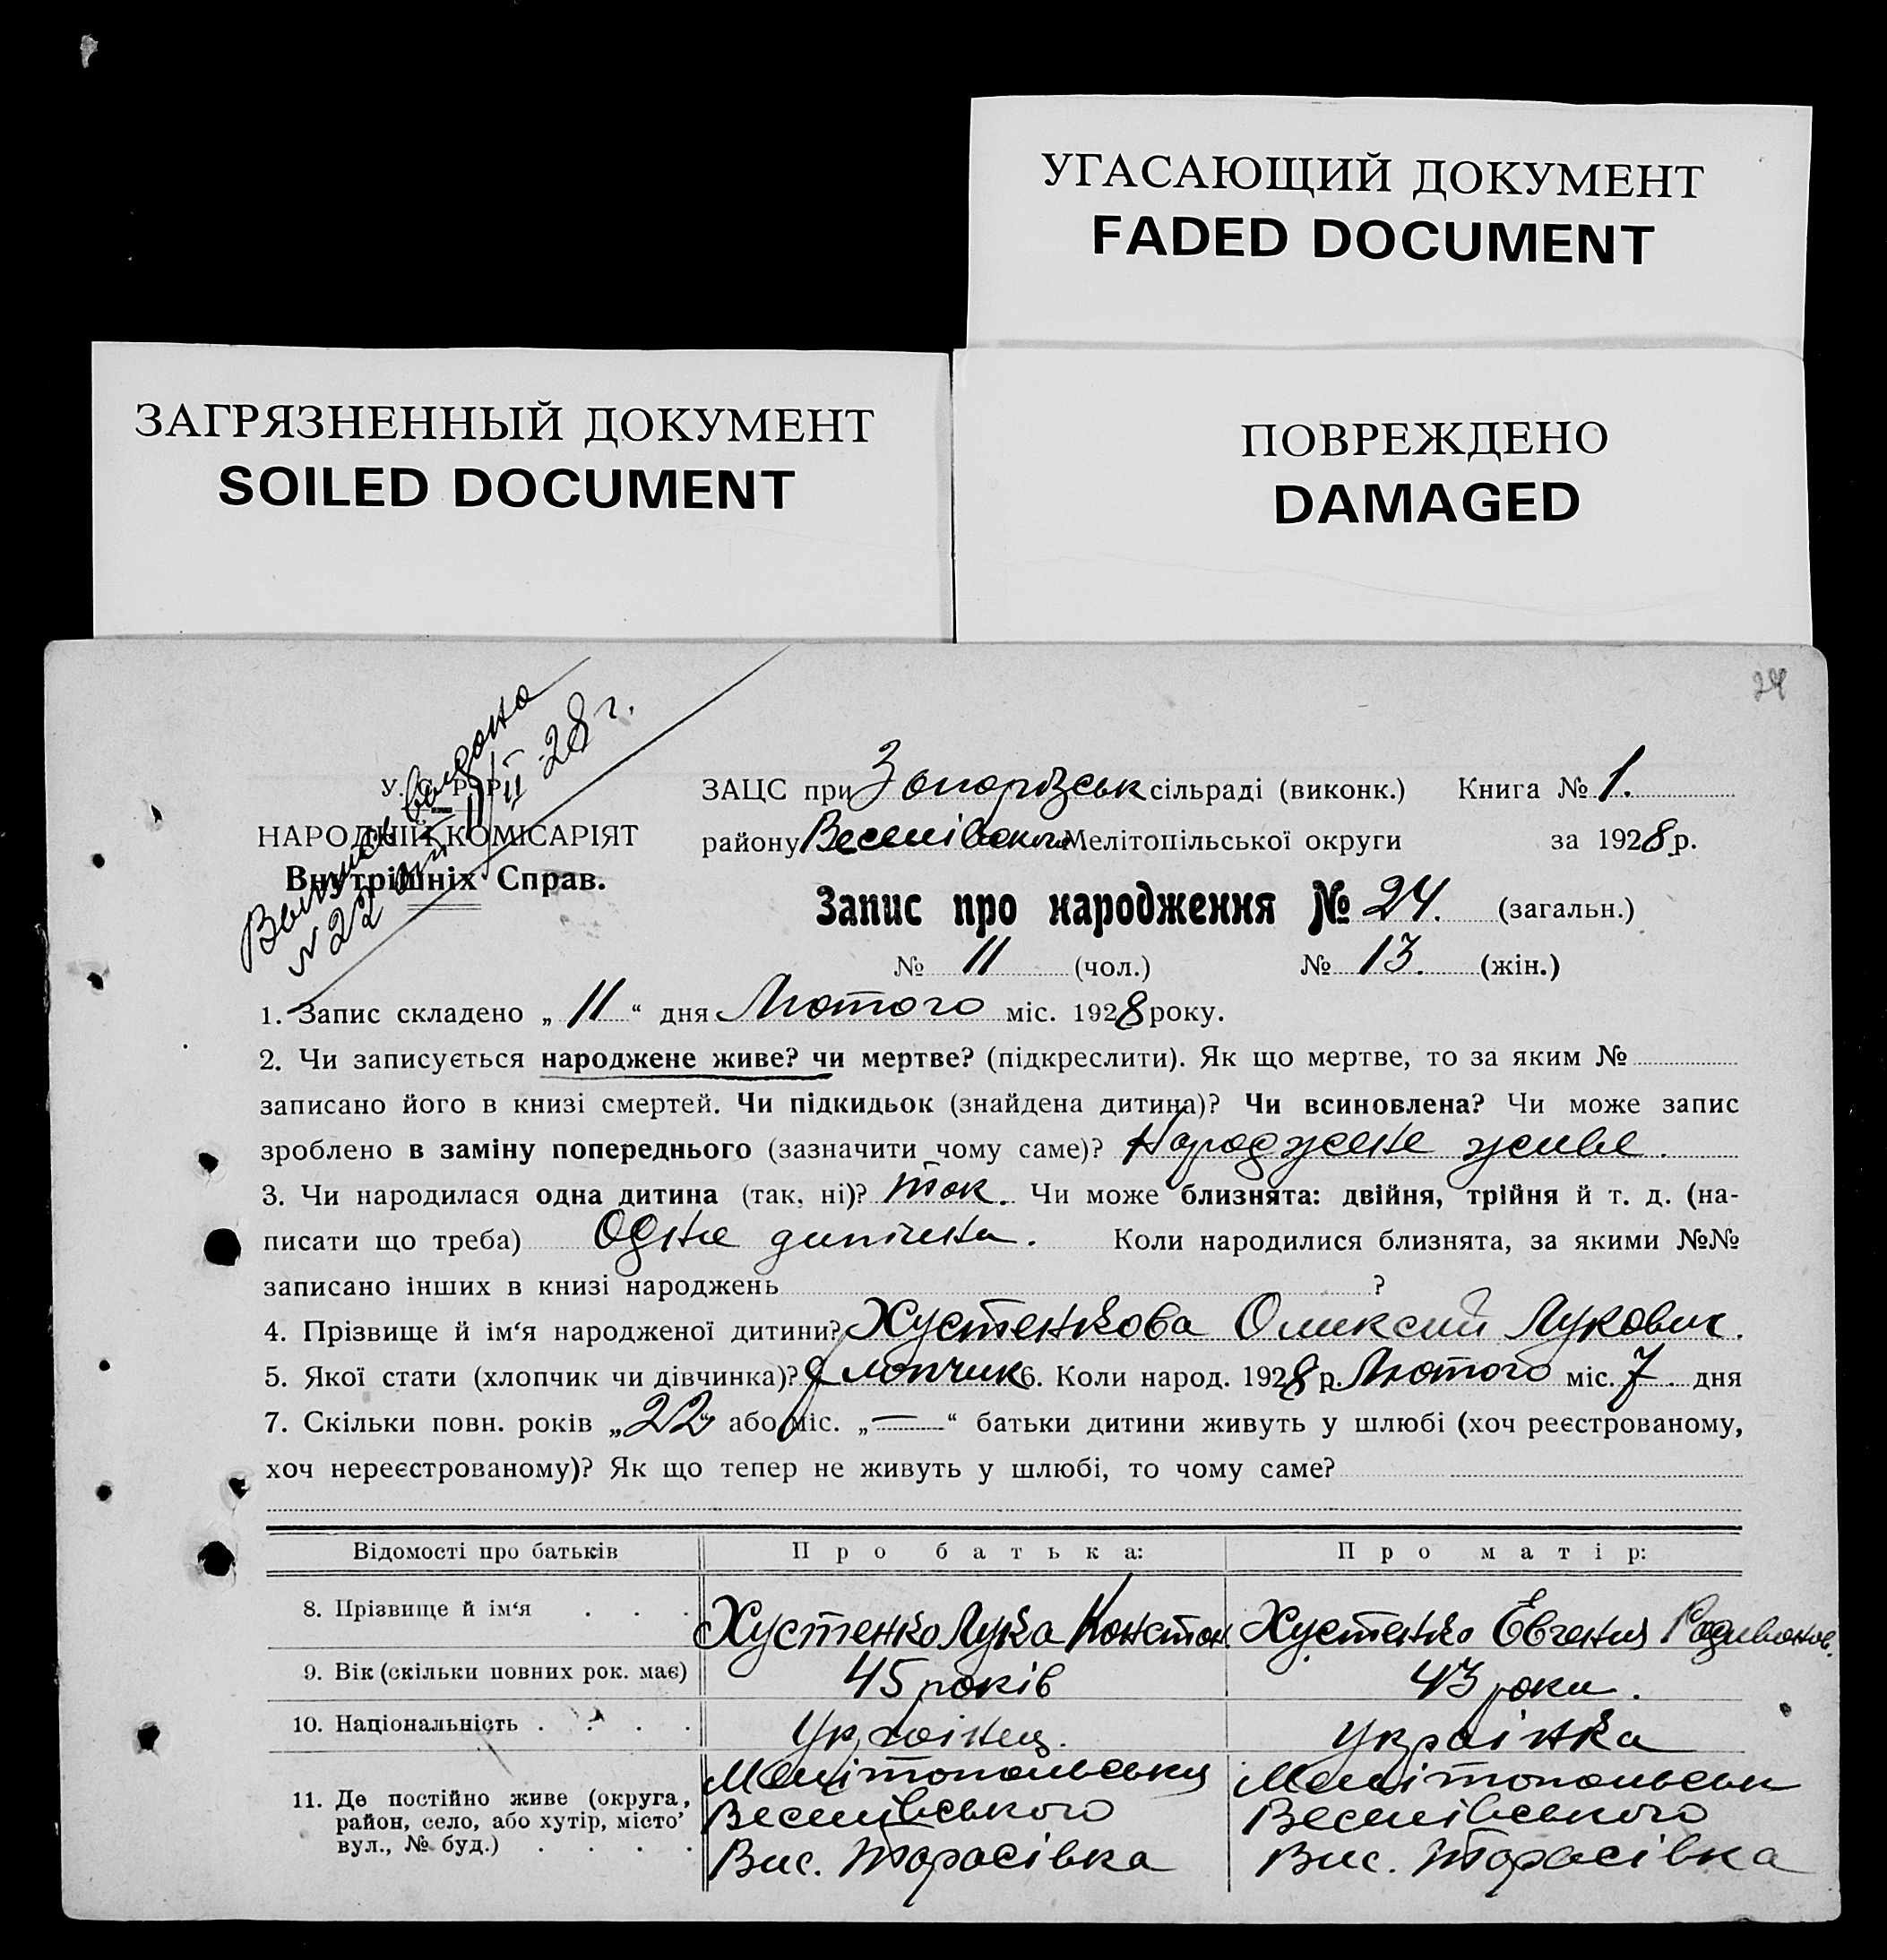 УГАСАЮЩИЙ ДОКУМЕНТ
FADED DOCUMENT
ЗАГРЯЗНЕННЫЙ ДОКУМЕНТ
SOILED DOCUMENT
ПОВРЕЖДЕНО
DAMAGED
24
Выпись выдана
№ 22 11/II 28 г.
У. С. Р. Р.
НАРОДНІЙ КОМІСАРІЯТ
Внутрішніх Справ.
ЗАЦС при Запорізськ сільраді (виконк.) Книга № 1.
району Веселівського Мелітопільської округи за 1928 р.
Запис про народження № 24. (загальн.)
№ 11 (чол.) № 13. (жін.)
1. Запис складено „ 11 “ дня Лютого міс. 1928 року.
2. Чи записується народжене живе? чи мертве? (підкреслити). Як що мертве, то за яким №
записано його в книзі смертей. Чи підкидьок (знайдена дитина)? Чи всиновлена? Чи може запис
зроблено в заміну попереднього (зазначити чому саме)? Народжене живе.
3. Чи народилася одна дитина (так, ні)? так. Чи може близнята: двійня, трійня й т. д. (на-
писати що треба) Одна дитина. Коли народилися близнята, за якими №№
записано інших в книзі народжень ?
4. Прізвище й ім‘я народженої дитини? Хустенкова Олексий Лукович.
5. Якої стати (хлопчик чи дівчинка)? Хлопчик 6. Коли народ. 1928 р. Лютого міс. 7. дня
7. Скільки повн. років „22“ або міс. „—“ батьки дитини живуть у шлюбі (хоч реєстрованому,
хоч нереєстрованому)? Як що тепер не живуть у шлюбі, то чому саме?
Відомості про батьків Про батька: Про матір:
8. Прізвище й ім‘я . . . Хустенко Лука Констан. Хустенко Евгения Родивонов.
9. Вік (скільки повних рок. має) 45 років 43 роки.
10. Національність . . . . Українец. Українка
11. Де постійно живе (округа, район, село, або хутір, місто’ вул., № буд.) . . . .
Мелітопольську
Веселівського
Вис. Тарасівка
Мелітопольськ
Веселівського
Вис. Тарасівка